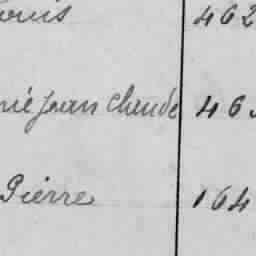 ouis 462
nié Jean Claude 46
Pierre 164